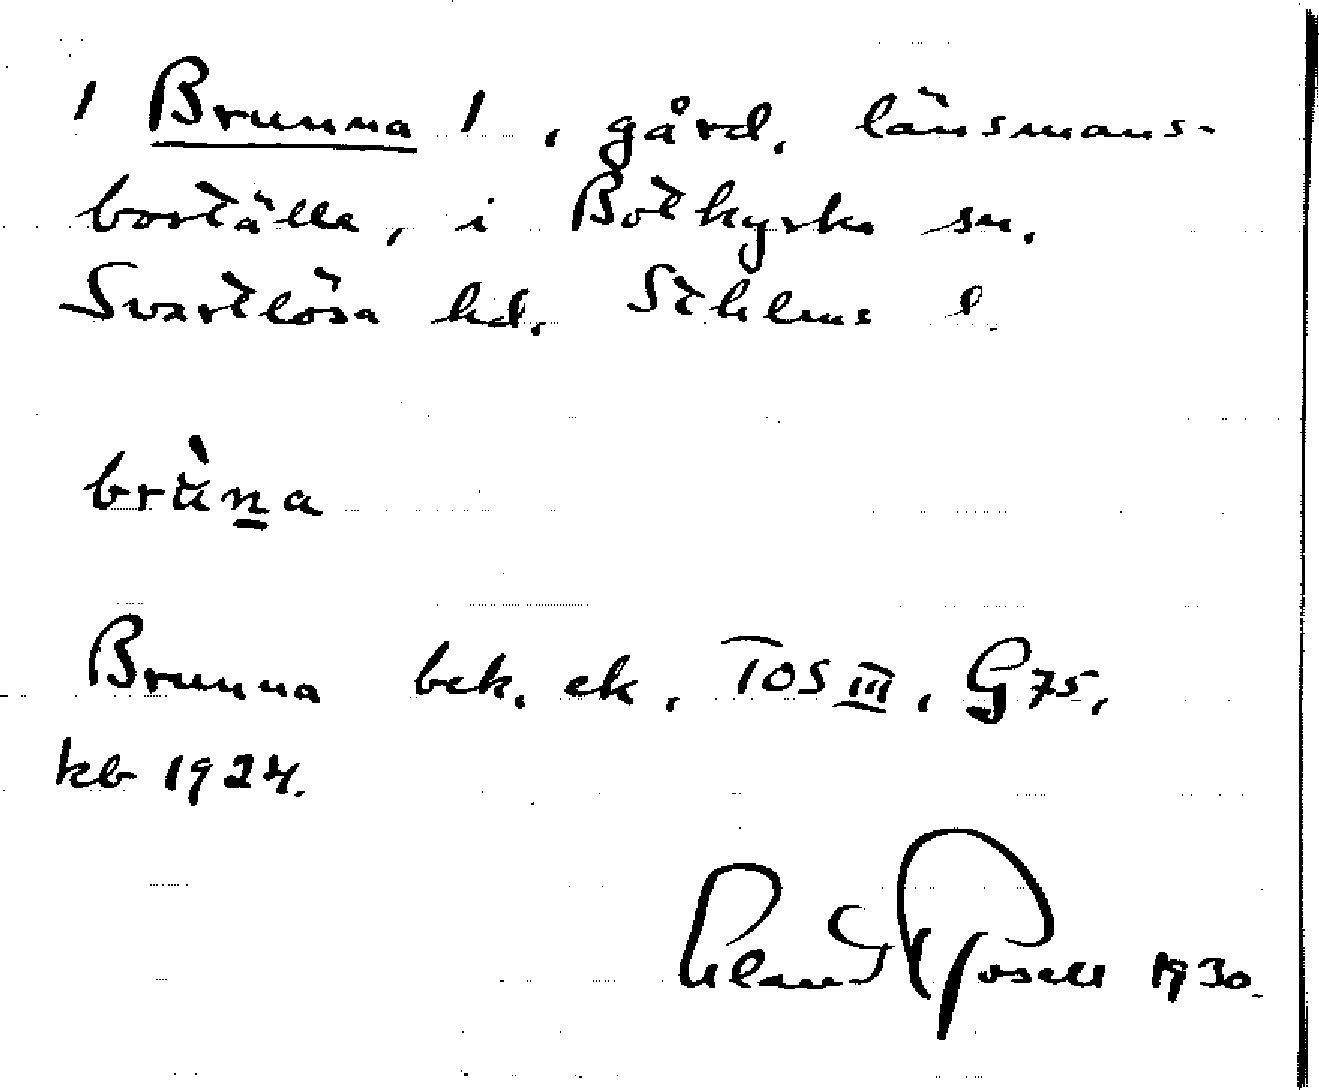 / Brunna / , gård, länsmans-
boställe, i Botkyrka sn.
Svartlösa hd. Sthlms l.
brùna
Brunna bek. ek. TOS III, G 75,
kb 1924.
1930.